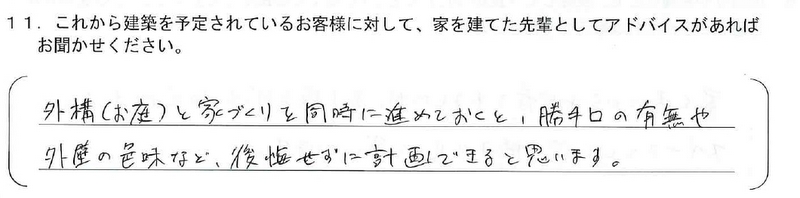 11．これから建築を予定されているお客様に対して、家を建てた先輩としてアドバイスがあれば
お聞かせください。
外構(お庭)と家づくりを同時に進めておくと、勝手口の有無や
外壁の色味など、後悔せずに計画できると思います。